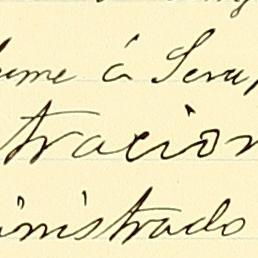 ume á Seru
tracion
inistrado